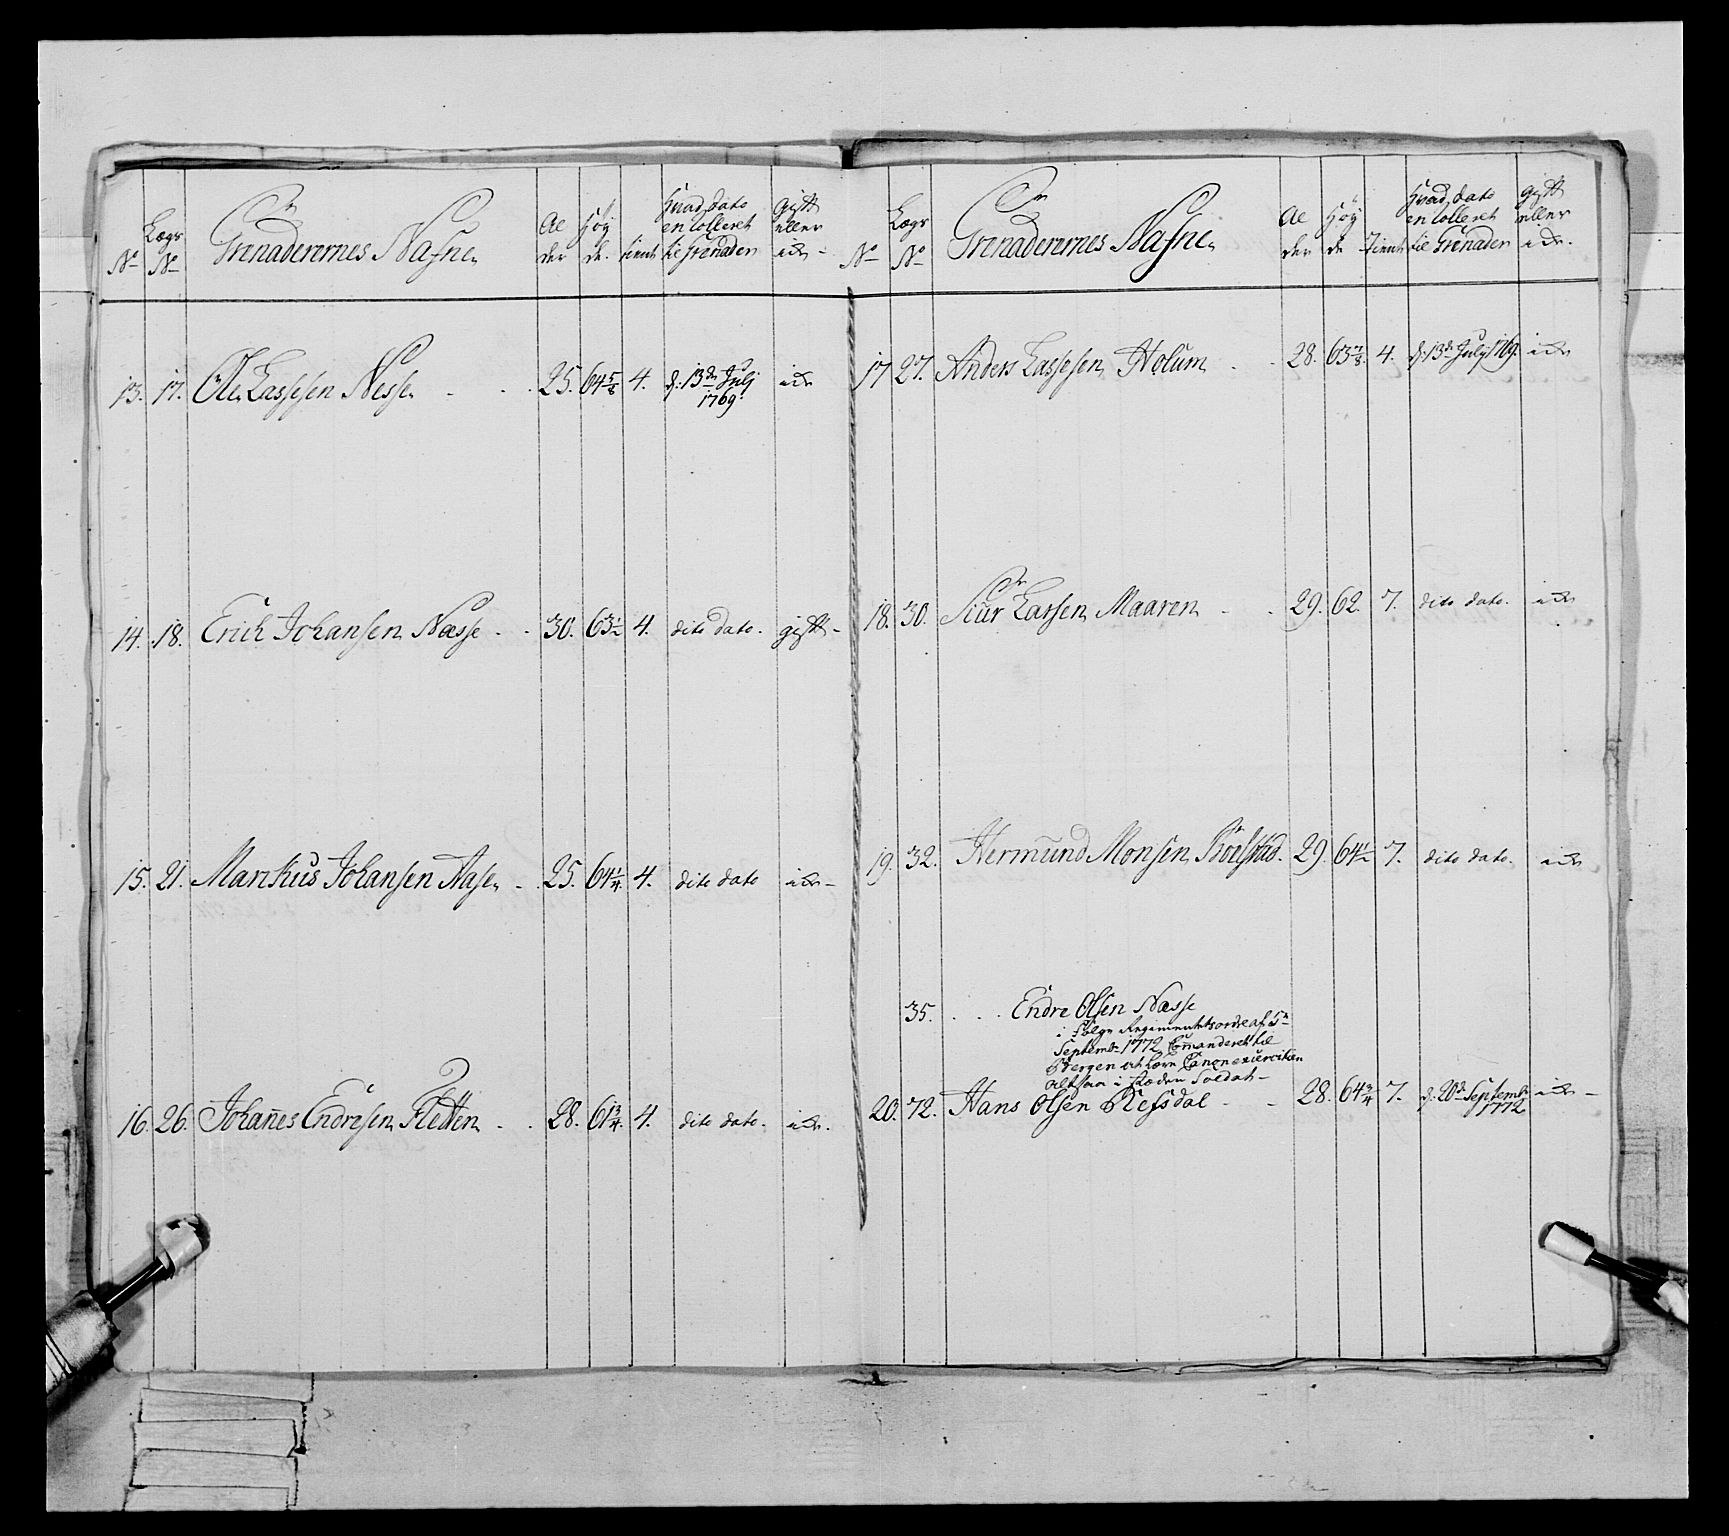 No Lægs No Grenaderernes Nafne Ael der Höy de. tient Hvad dato enrolleret til Grenader gift eller ei
13. 17. Ole Lassesen Nesse 25. 64 5/8 4. d. 13de Julj 1769
14. 18. Erich Johansen Næsse 30. 63 1/2 4. dito dato. gift
15. 21. Marckus Johansen Aase 25. 64 1/4 4. dito dato
16. 26. Johañes Endresen Fletten 28. 61 3/4 4. dito dato.
No Lægs No Grenaderernes Nafne Ael der Höy de Tient Hvad dato enrolleret til Grenader gift eller ei
17 27. Anders Lassesen Holum 28. 63 7/8 4. d. 13de Julj 1769.
18. 30. Siur Larsen Maaren 29. 62. 7. dito dato.
19. 32. Hermund Monsen 29. 64 1/2 7. dito dato.
35. Endre Olsen Næsse
i følge Regimentets ordre af 5te
Septembr 1772 Comanderet til
Bergen at lære Canonexercitien
altsaa i stæden Soldat
20. 72. Hans Olsen Refsdal 28. 64 3/4 7. d. 20de Septembr 1772